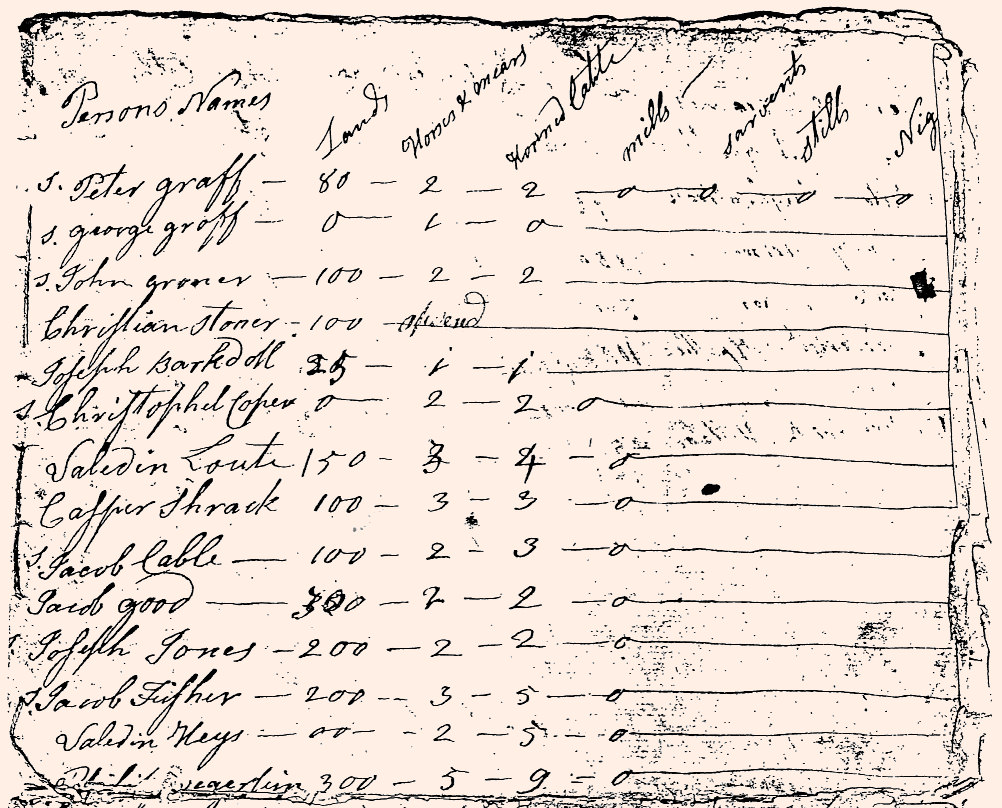 Persons Names Land Horses & mears Horned Cattle mills sarvents stills Nig
s. Peter graff — 80 — 2 — 2 — 0 — 0 — 0 — 0
s. george graff — 0 — 1 — 0
s. John groner — 100 — 2 — 2
Christian stoner - 100 -
Joseph Barkdoll 25 — 1 — 1
s. Christophel Coper 0 — 2 — 2 0
Valedin Loute 150 - 3 - 4 - 0
Casper Shrack 100 - 3 - 3 - 0
s. Jacob Cable — 100 - 2 - 3 — 0
Jacob good — 300 - 2 - 2 - 0
Joseph Jones - 200 - 2 - 2 - 0
s. Jacob Fisher — 200 - 3 - 5 — 0
Valedin Keys — 00 - 2 - 5 - 0
300 - 5 - 9 = 0